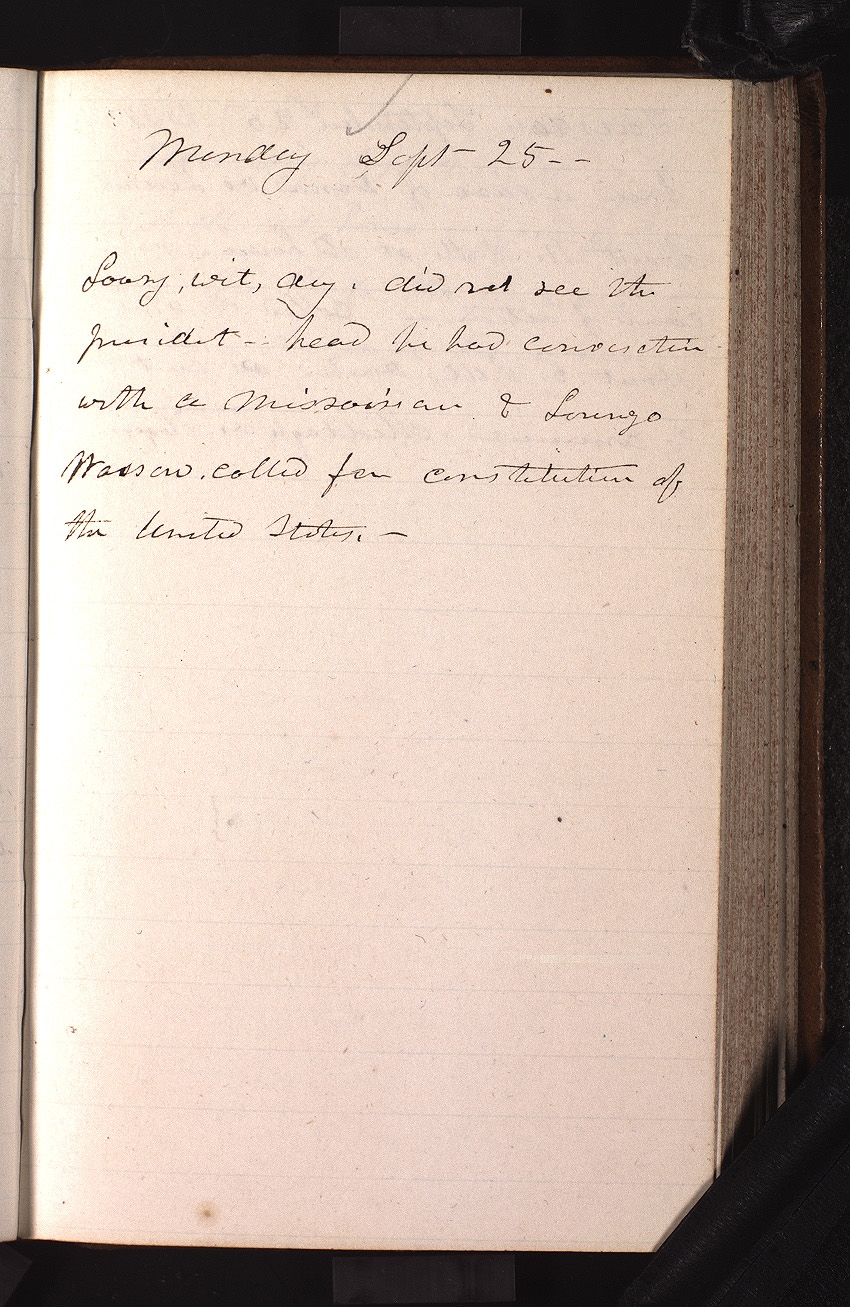 Monday Sept 25--
Lowry, wet, day. did not see the
president -- head he had conversation
with a Missourian & Lorenzo
Wasson. called for constitution of
the United States. —